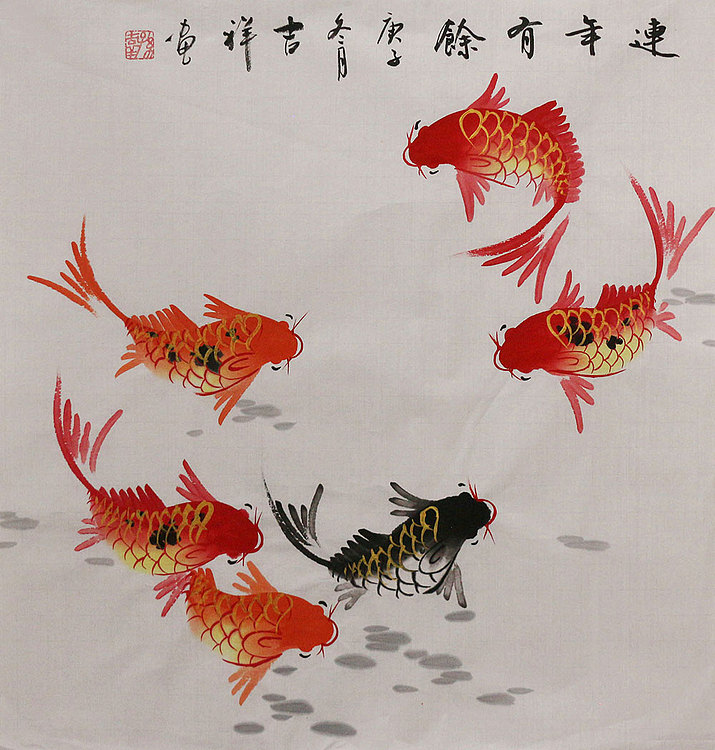 連年有餘庚子冬月吉祥畫